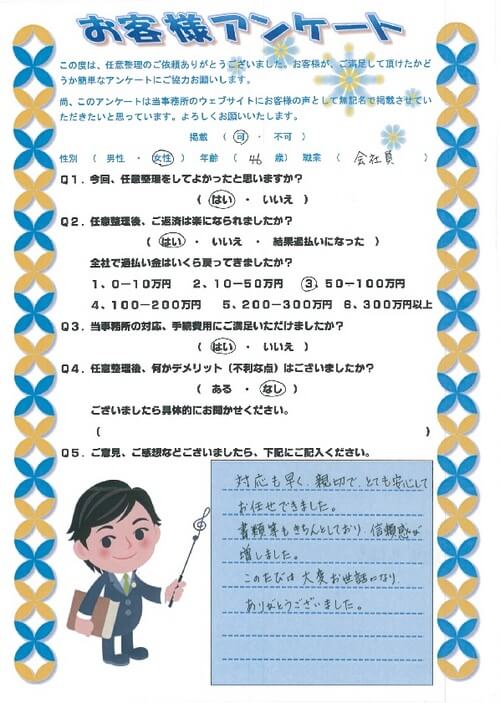 お客様アンケート
この度は、任意整理のご依頼ありがとうございました。お客様が、ご満足して頂けたかど
うか簡単なアンケートにご協力お願いします。
尚、このアンケートは当事務所のウェブサイトにお客様の声として無記名で掲載させてい
ただきたいと思っています。よろしくお願いいたします。
掲載 ( 可 ・ 不可 )
性別 ( 男性 ・ 女性 ) 年齢 ( 46 歳) 職業 ( 会社員 )
Q1．今回、任意整理をしてよかったと思いますか？
( はい ・ いいえ )
Q2．任意整理後、ご返済は楽になられましたか？
( はい ・ いいえ ・ 結果過払いになった )
全社で過払い金はいくら戻ってきましたか？
1、0－10万円 2、10－50万円 3、50－100万円
4、100－200万円 5、200－300万円 6、300万円以上
Q3．当事務所の対応、手続費用にご満足いただけましたか？
( はい ・ いいえ )
Q4．任意整理後、何かデメリット（不利な点）はございましたか？
( ある ・ なし )
ございましたら具体的にお聞かせください。
( )
Q5．ご意見、ご感想などございましたら、下記にご記入ください。
対応も早く、親切で、とても安心して
お任せできました。
書類等もきちんとしており、信頼感が
増しました。
このたびは大変お世話になり
ありがとうございました。